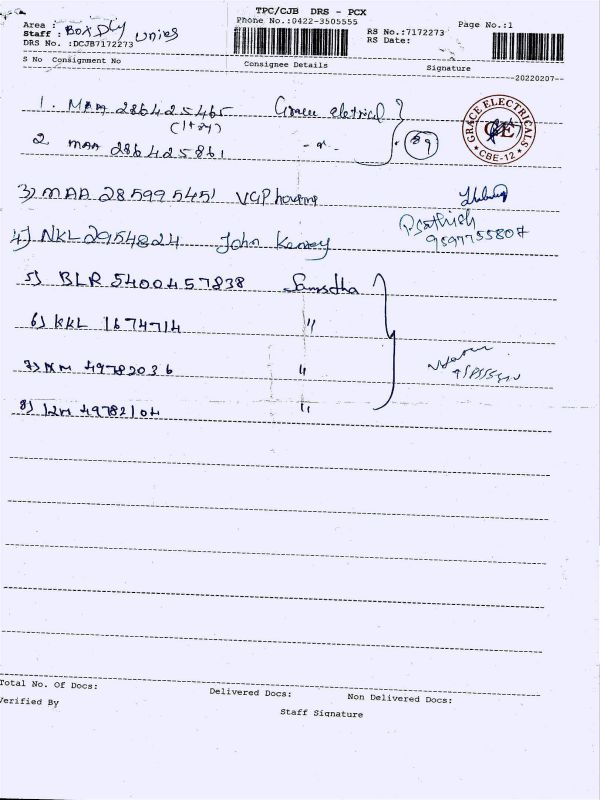 TPC/CJB DRS - PCX
Phone No.:0422-3505555
Page No.:1
Area :
Staff : BOX DLY
DRS No. :DCJB7172273
RS No.:7172273
RS Date:
S No Consignment No Consignee Details Signature
20220207
1. MAA 286425465 Grace eletrical
2 MAA 286425861 - " -
89
GRACE ELECTRICALS
CE
CBE-12
3) MAA 285995451 VGP housing
4) NKL 2954824 John Kenney
9597755807
5) BLR 5400457838
6) KKL 1674714 "
7) 49782036 "
8) 49782104 "
Total No. Of Docs: Delivered Docs: Non Delivered Docs:
Verified By
Staff Signature